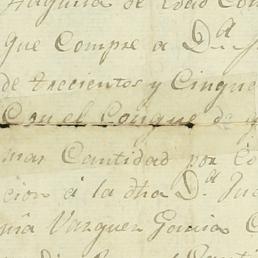 de edad con
que Compre a D.ª
de trecientos y Cinque
Con el Conque de y
mas Cantidad por
cion á la dha D.ª Jua
mia Vazquez Garcia C